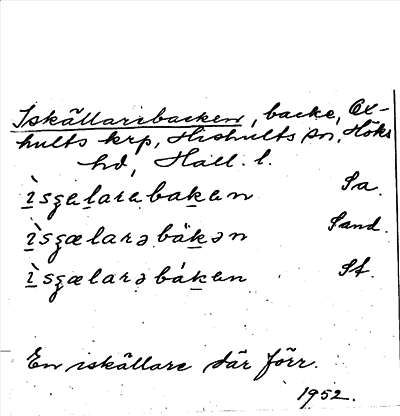 Iskällarebacken, backe, Ox-
hults krp, Hishults sn, Höks
hd, Hall. l.
ìsʒalarabakan Sa.
ìsʒælarəbàkən Sand.
ìsʒælarəbàkən St.
En iskällare där förr.
1952.